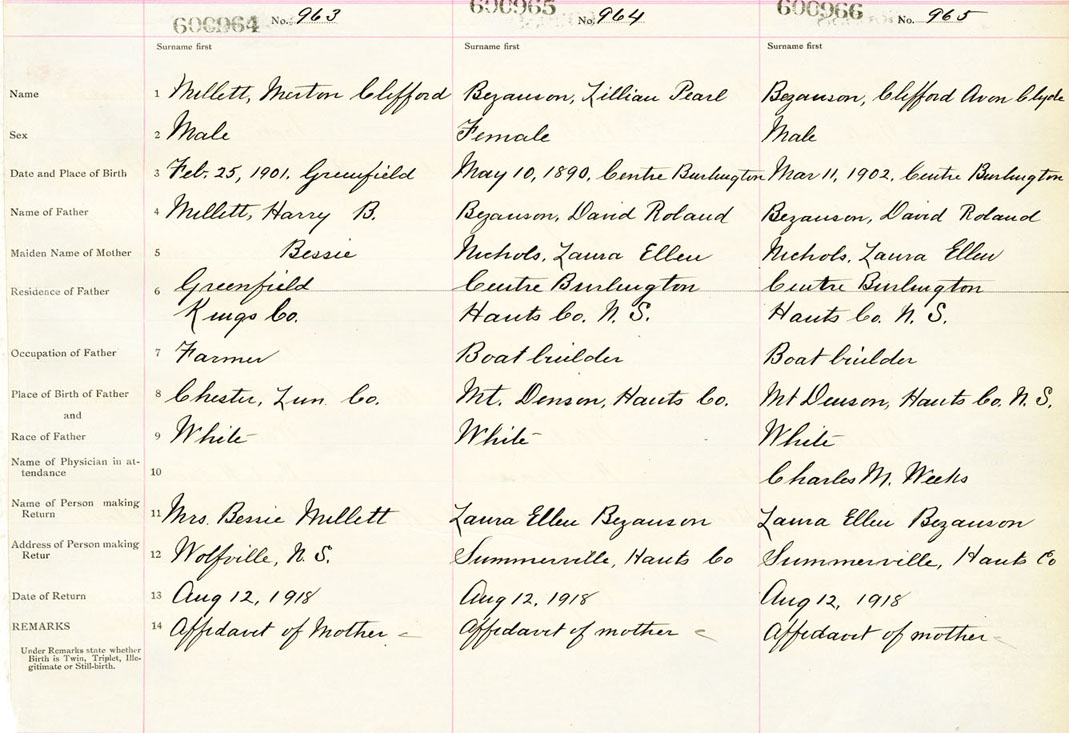 600964 No. 963 600965 No. 964 600966 No. 965
Surname first Surname first Surname first
Name 1 Millett, Merton Clifford Bezanson, Lillian Pearl Bezanson, Clifford Avon Clyde
Sex 2 Male Female Male
Date and Place of Birth 3 Feb. 25, 1901. Greenfield May 10, 1890. Centre Burlington Mar 11, 1902. Centre Burlington
Name of Father 4 Millett, Harry B. Bezanson, David Roland Bezanson, David Roland
Maiden Name of Mother 5 Bessie Nichols, Laura Ellen Nichols, Laura Ellen
Residence of Father 6 Greenfield Centre Burlington Centre Burlington
Kings Co. Hants Co. N. S. Hants Co. N. S.
Occupation of Father 7 Farmer Boat builder Boat builder
Place of Birth of Father 8 Chester, Lun. Co. Mt. Denson, Hants Co. Mt Denson, Hants Co. N. S.
and
Race of Father 9 White White White
Name of Physician in at-
tendance 10 Charles M. Weeks
Name of Person making
Return 11 Mrs. Bessie Millett Laura Ellen Bezanson Laura Ellen Bezanson
Address of Person making
Retur 12 Wolfville, N. S. Summerville, Hants Co Summerville, Hants Co
Date of Return 13 Aug 12, 1918 Aug 12, 1918 Aug 12, 1918
REMARKS 14 Affidavit of Mother Affidavit of mother Affidavit of mother
Under Remarks state whether
Birth is Twin, Triplet, Ille-
gitimate or Still-birth.